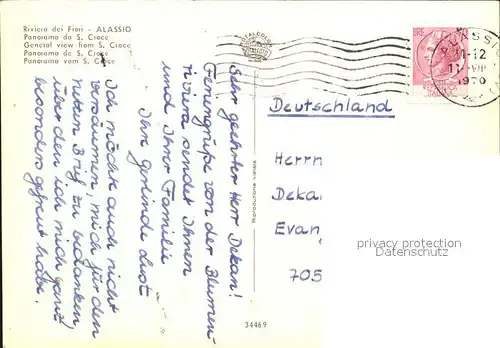 Riviera dei Fiori - ALASSIO
Panorama da S. Croce
General view from S. Croce
Panorama de S. Croce
Panorama vom S. Croce
ITALCOLOR
ALASSIO
11-12
1970
Deutschland
Herrn
Dekan
Evan
705
privacy protection
Datenschutz
Riproduzione vietata
34469
Sehr geehrter Herr Dekan!
Feriengrüße von der Blumen-
riviera sendet Ihnen
und Ihrer Familie
Ihre Gerlinde
Ich möchte auch nicht
versäumen, mich für den
netten Brief zu bedanken,
über den ich mich ganz
besonders gefreut habe.